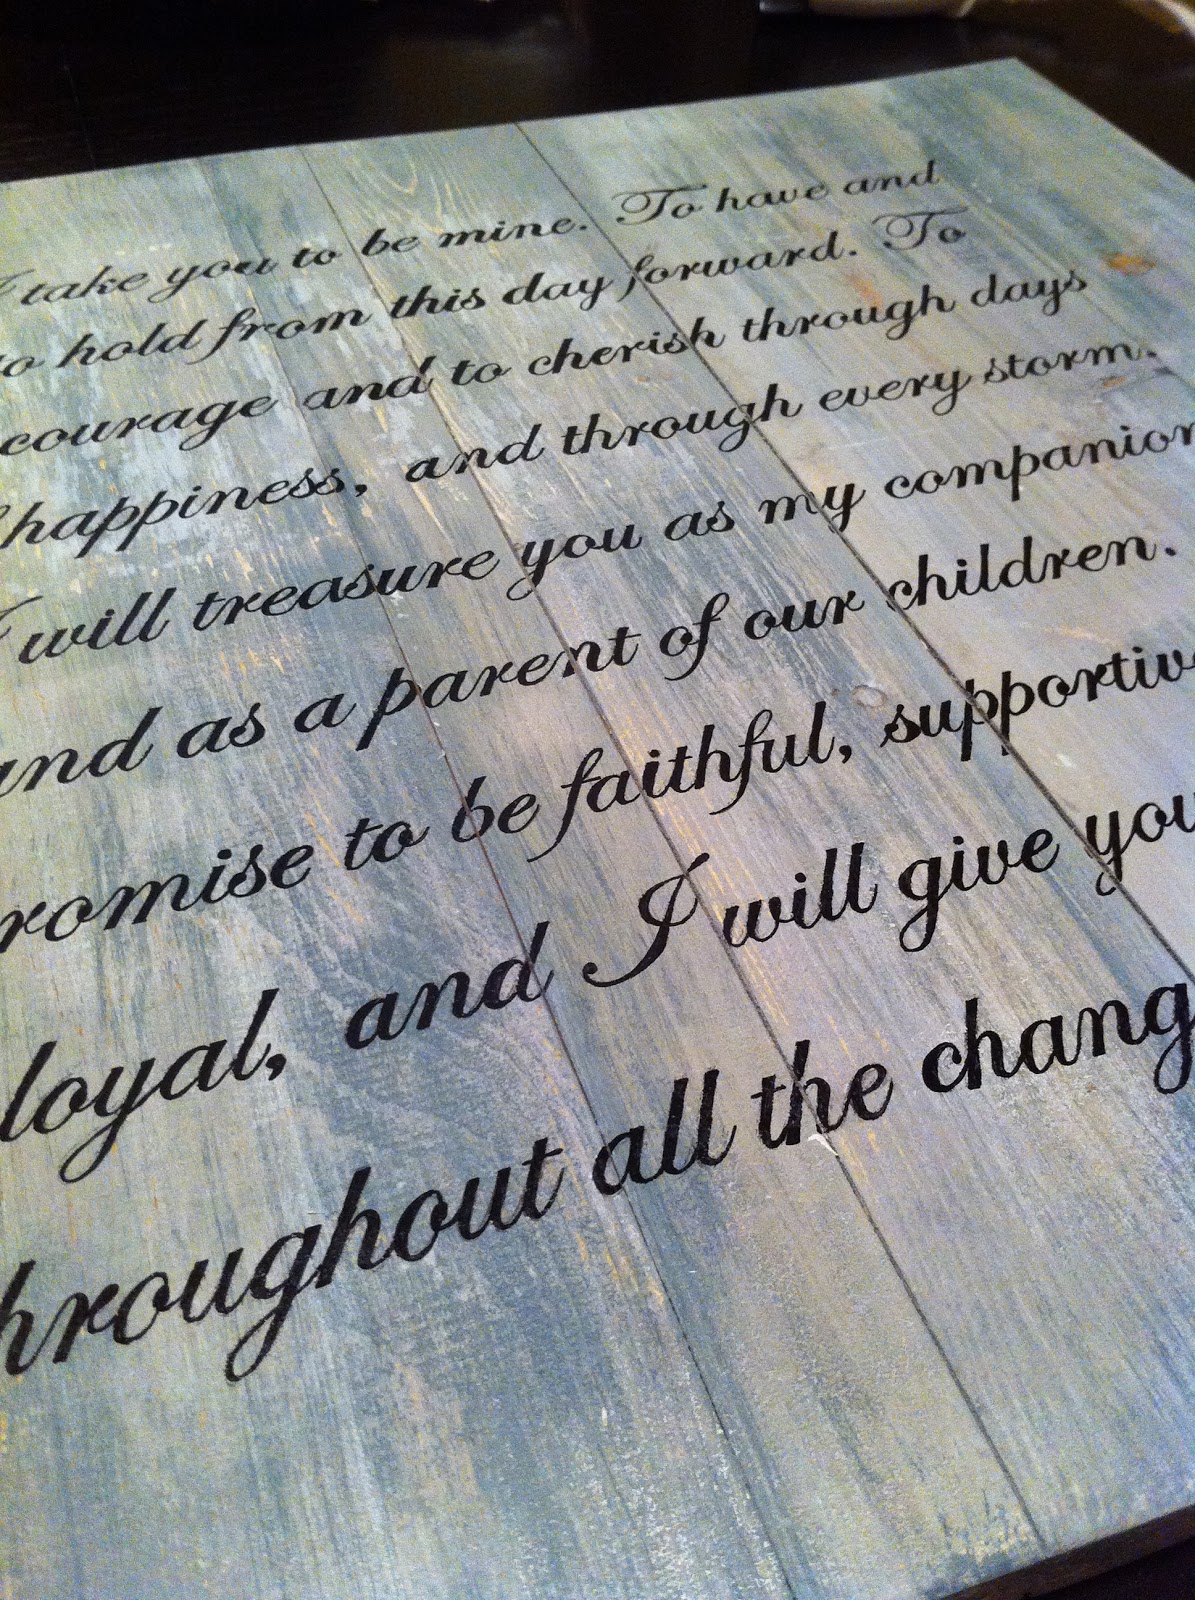 I take you to be mine. To have and
to hold from this day forward. To
courage and to cherish through days
happiness, and through every storm.
I will treasure you as my companion
and as a parent of our children.
romise to be faithful, supportive
loyal, and I will give you
hroughout all the chang